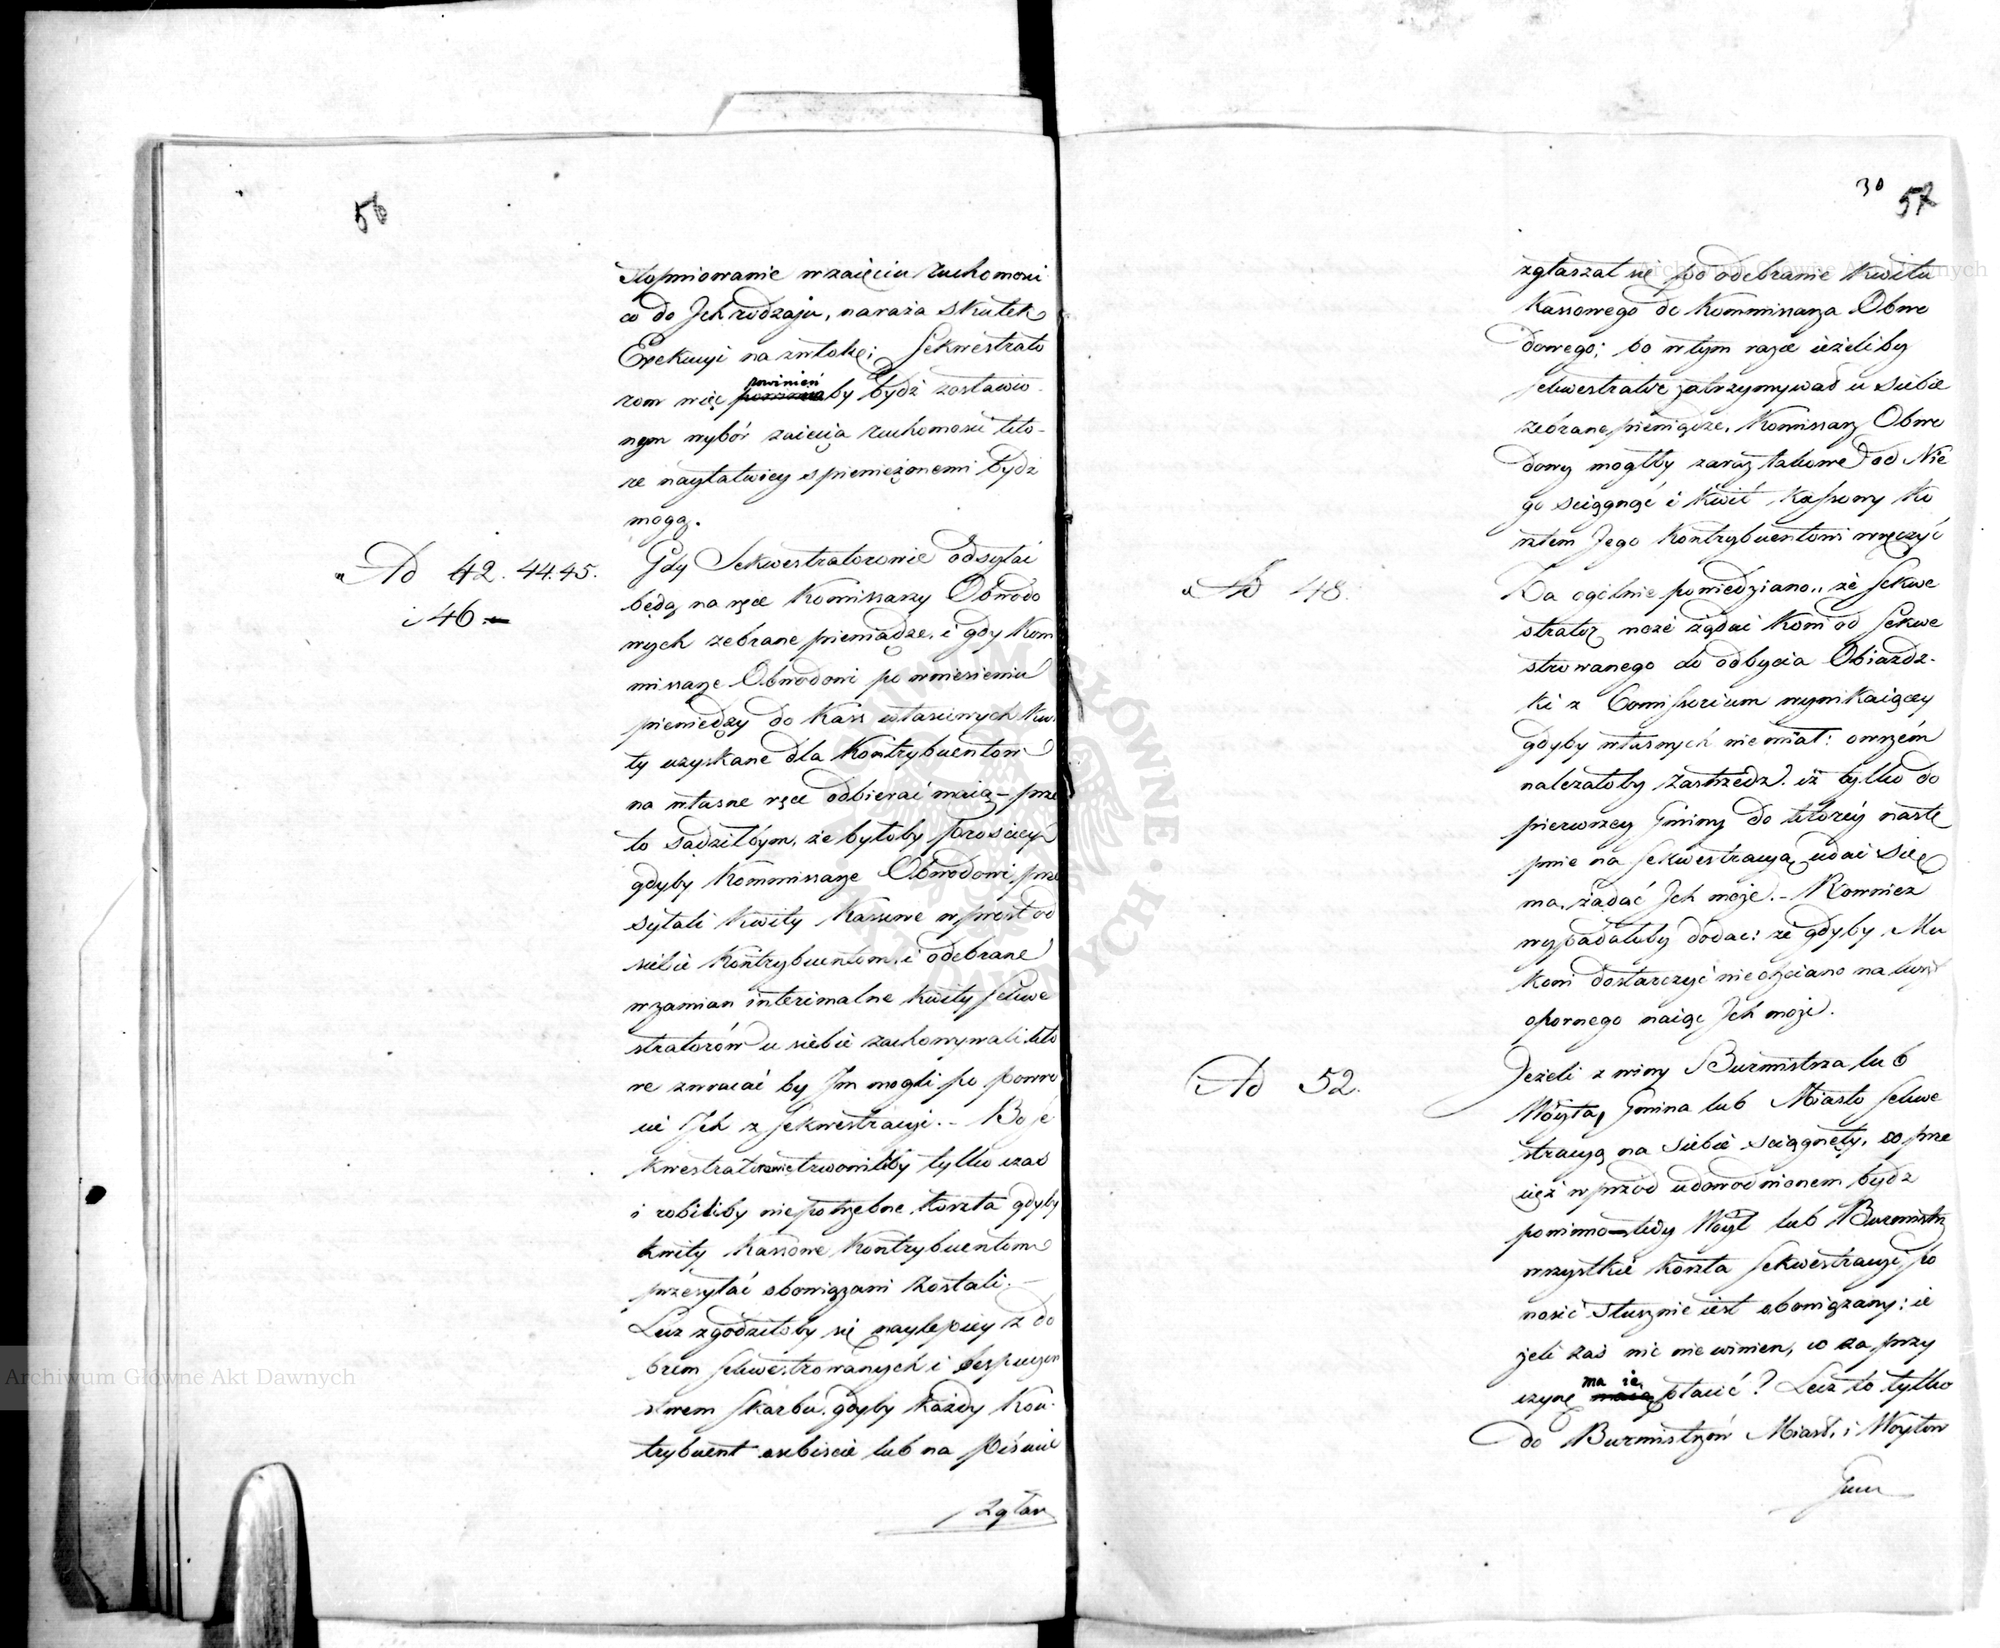 56
Stopniowanie w zaięciu ruchomosci
co do Jch rodzaju, naraża skutek
Exekucyi na zwłokę; Sekwestrato
rom więc powinień powinna by bydź zostawio
nym wybór zaięcia ruchomosci kto-
re nayłatwiey spieniężonemi bydź
mogą.
Ad 42. 44. 45.
i 46.
Gdy Sekwestratorowie odsyłać
będą na ręce Komissarzy Obwodo
wych zebrane pieniądze, i gdy Kom
missarze Obwodowi po wniesieniu
pieniędzy do Kass własciwych kwi
ty uzyskane dla Kontrybuentow
na własne ręce odbierać maią – prze
to sądziłbym, że byłoby prosciey
gdyby Kommissarze Obwodowi prze
syłali kwity Kassowe wprost od
siebie Kontrybuentom, i odebrane
w zamian interimalne kwity sekwe
stratorów u siebie zachowywali, kto
re zwracać by Jm mogli po powro
cie Jch z sekwestracyi. – Bo se
kwestratorowie trwoniliby tylko czas
i robiliby niepotrzebne koszta gdyby
kwity Kassowe Kontrybuentom
przesyłać obowiązani zostali. –
Lecz zgodziłoby się naylepiey z do
brem sekwestrowanych i bespieczen
stwem Skarbu, gdyby każdy Kon-
trybuent osobiscie lub na pismie
zgłas
30 57
zgłaszał się po odebranie kwitu
Kassowego do Kommissarza Obwo
dowego; bo w tym razie ieżeliby
sekwestrator zatrzymywał u siebie
zebrane pieniądze, Komissarz Obwo
dowy mogłby zaraz takowe od Nie
go sciągnąć i kwit Kassowy ko
sztem Jego Kontrybuentowi wręczyć
Ad 48.
Za ogólnie powiedziano, że Sekwe
strator może żądać koni od Sekwe
strowanego do odbycia Obiazdz-
ki z Comissorium wynikaiącey
gdyby własnych nie miał: owszém
należałoby zastrzedz, iż tylko do
pierwszey Gminy do któréy nastę
pnie na sekwestracyą udać się
ma, żądać Jch może. – Rownież
wypadałoby dodać: że gdyby Mu
koni dostarczyć nie chciano na koszt
opornego naiąć Jch może.
Ad 52.
Jeżeli z winy Burmistrza lub
Wóyta, Gmina lub Miasto sekwe
stracyą na siebie sciągnęły, co prze
cież wprzód udowodnionem bydz
powinno tedy Wóyt lub Burmistrz
wszystkie koszta sekwestracyi po
nosić słusznie iest obowiązany; ie
żeli zaś nic nie winien, co za przy
czynę ma ie maią płacić? Lecz to tylko
do Burmistrzów Miast, i Woytow
Gmin
Archiwum Główne Akt Dawnych
Archiwum Główne Akt Dawnych
ARCHIWUM GŁÓWNE AKT DAWNYCH